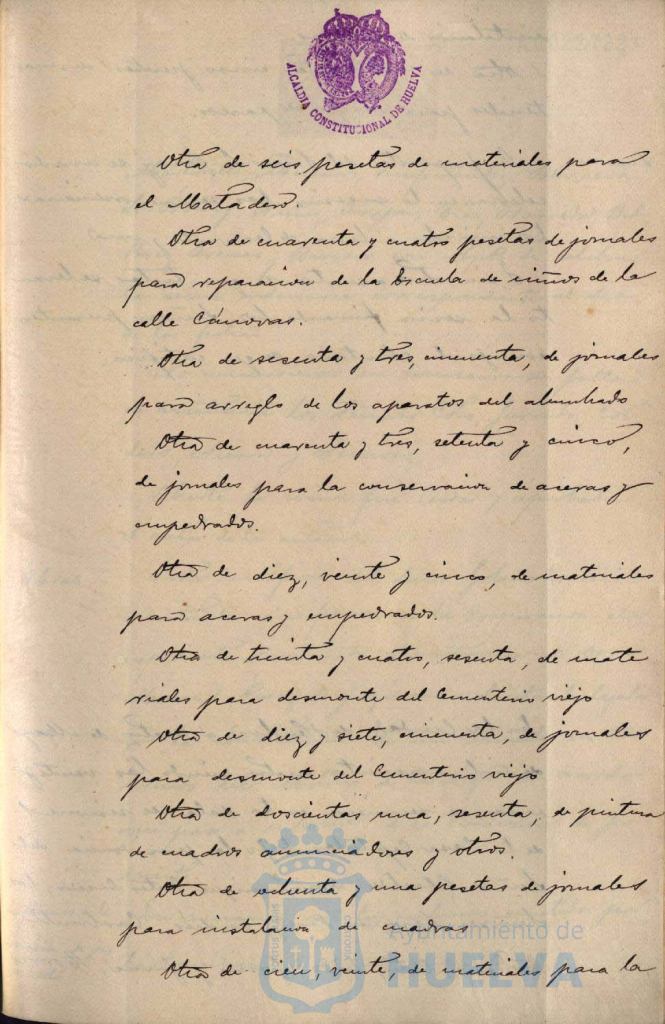 ALCALDIA CONSTITUCIONAL DE HUELVA
Otra de seis pesetas de materiales para
el Matadero.
Otra de cuarenta y cuatro pesetas de jornales
para reparacion de la Escuela de niños de la
calle Cánovas.
Otra de sesenta y tres, cincuenta, de jornales
para arreglo de los aparatos del alumbrado
Otra de cuarenta y tres, setenta y cinco,
de jornales para la conservacion de aceras y
empedrados.
Otra de diez, veinte y cinco, de materiales
para aceras y empedrados.
Otra de treinta y cuatro, sesenta, de mate
riales para desmonte del Cementerio viejo
Otra de diez y siete, cincuenta, de jornales
para desmonte del Cementerio viejo
Otra de doscientas una, sesenta, de pintura
de cuadros anunciadores y otros.
Otra de ochenta y una pesetas de jornales
para instalacion de cuadras
Otra de cien, veinte, de materiales para la
Ayuntamiento de
HUELVA